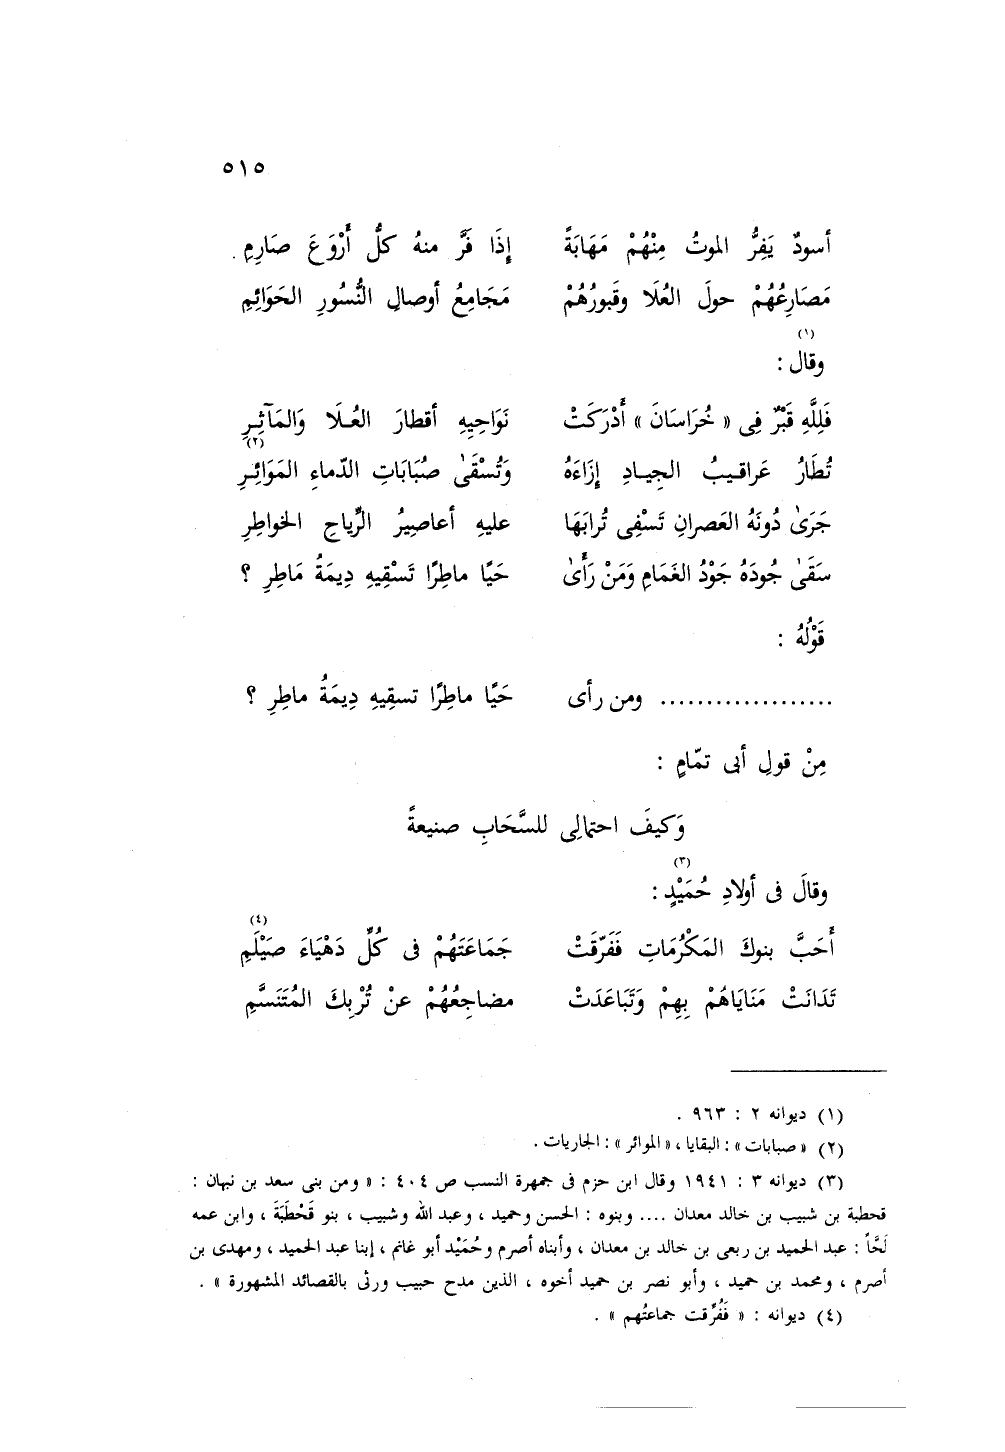 ٥١٥
أسودٌ يَفِرُّ الموتُ مِنْهُمْ مَهَابَةً إِذَا فَرَّ منهُ كلُّ أَرْوَعَ صَارِمِ .
مَصَارِعُهُمْ حولَ العُلَا وقَبورُهُمْ مَجَامِعُ أوصالِ النُّسُورِ الحَوَائِمِ
وقال (١) :
فَلِلَّهِ قَبْرٌ فِى « خُرَاسَانَ » أَدْرَكَتْ نَوَاحِيهِ أقطارَ العُـلَا وَالمَآثِـرِ
تُطَارُ عَراقـيبُ الجِيـادِ إِزَاءَهُ وَتُسْقَىٰ صُبَابَاتِ الدّماءِ المَوَائِـرِ (٢)
جَرَىٰ دُونَهُ العَصرانِ تَسْفِى تُرابَهَا عليهِ أعاصِيرُ الرِّياحِ الخواطِرِ
سَقَىٰ جُودَهُ جَوْدُ الغَمَامِ وَمَنْ رَأَىٰ حَيًا ماطِرًا تَسْقِيهِ دِيمَةُ مَاطِرِ ؟
قَوْلُهُ :
................... ومن رأى حَيًا ماطِرًا تسقِيهِ دِيمَةُ ماطِرِ ؟
مِنْ قولِ أبى تمّامٍ :
وَكيفَ احتمالِى للسَّحَابِ صنيعةً
وقالَ فى أولادِ حُمَيْدٍ (٣) :
أَحَبَّ بنوكَ المَكْرُمَاتِ فَفَرّقَتْ جَمَاعَتَهُمْ فى كُلِّ دَهْيَاءَ صَيْلَمِ (٤)
تَدَانَتْ مَنَايَاهُمْ بِهِمْ وَتَبَاعَدَتْ مضاجِعُهُمْ عنْ تُرْبِكَ المُتَنَسَّمِ
(١) ديوانه ٢ : ٩٦٣ .
(٢) « صبابات » : البقايا ، « الموائر » : الجاريات .
(٣) ديوانه ٣ : ١٩٤١ وقال ابن حزم فى جمهرة النسب ص ٤٠٤ : « ومن بنى سعد بن نبهان :
قحطبة بن شبيب بن خالد معدان .... وبنوه : الحسن وحميد ، وعبد الله وشبيب ، بنو قَحْطَبَةَ ، وابن عمه
لَحًّا : عبد الحميد بن ربعى بن خالد بن معدان ، وأبناه أصرم وحُمَيْد أبو غانم ، إبنا عبد الحميد ، ومهدى بن
أصرم ، ومحمد بن حميد ، وأبو نصر بن حميد أخوه ، الذين مدح حبيب ورثى بالقصائد المشهورة » .
(٤) ديوانه : « فَفُرِّقت جماعتُهم » .